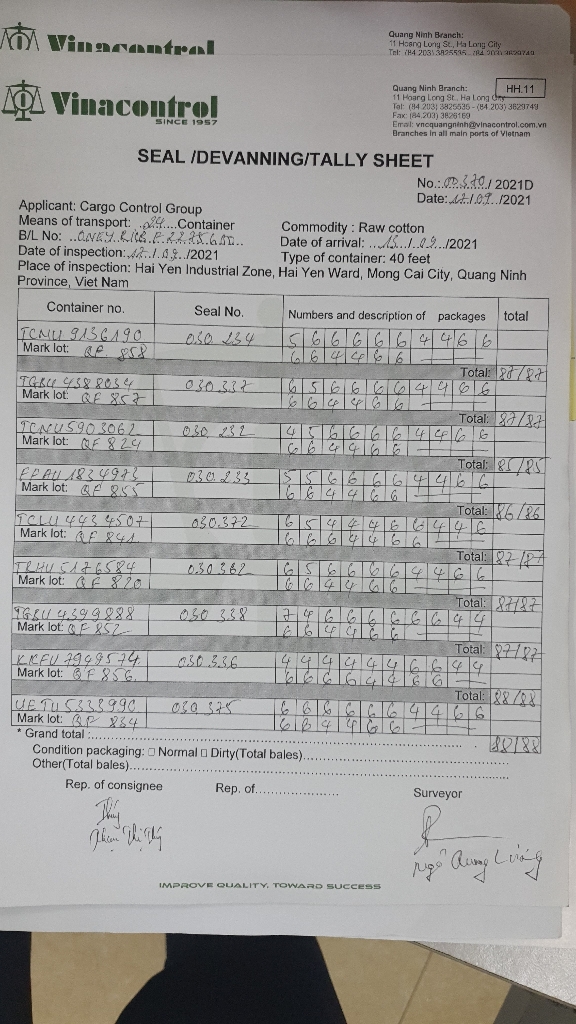 Vinacontrol
Quang Ninh Branch:
11 Hoang Long St., Ha Long City
Tel: (84.203) 3825535 - (84.203) 3629749
Vinacontrol
SINCE 1957
Quang Ninh Branch:
11 Hoang Long St., Ha Long City
Tel: (84.203) 3825535 - (84.203) 3629749
Fax: (84.203) 3826169
Email: vncquangninh@vinacontrol.com.vn
Branches in all main ports of Vietnam
HH.11
SEAL /DEVANNING/TALLY SHEET
No.: / 2021D
Date: /2021
Applicant: Cargo Control Group
Means of transport: 24 Container
Commodity : Raw cotton
B/L No:
Date of arrival: /2021
Date of inspection: /2021
Type of container: 40 feet
Place of inspection: Hai Yen Industrial Zone, Hai Yen Ward, Mong Cai City, Quang Ninh
Province, Viet Nam
Container no. Seal No. Numbers and description of packages total
TCNU 9136190 030 234 5 6 6 6 6 6 4 4 6 6
Mark lot: QF 858 6 6 4 4 6 6
Total: 87/87
TGBU 4388034 030 337 6 5 6 6 6 6 4 4 6 6
Mark lot: QF 857 6 6 4 4 6 6
Total: 87/87
TCNU 5903062 030 232 4 5 6 6 6 6 4 4 6 6
Mark lot: QF 824 6 6 4 4 6 6
Total: 85/85
1834973 030 233 5 5 6 6 6 6 4 4 6 6
Mark lot: QF 855 6 6 4 4 6 6
Total: 86/86
TCLU 4434507 030.372 6 5 4 4 4 6 6 4 4 6
Mark lot: QF 841 6 6 6 4 4 6 6
Total: 87/87
TRHU 5176584 030 362 6 5 6 6 6 6 4 4 6 6
Mark lot: QF 820 6 6 4 4 6 6
Total: 87/87
TGBU 4399888 030 338 7 4 6 6 6 6 6 6 4 4
Mark lot: QF 852 6 6 4 4 6 6
Total: 87/87
KKFU 7949574 030 336 4 4 4 4 4 4 6 6 4 4
Mark lot: QF 856 6 6 6 6 4 4 6 6
Total: 88/88
UETU 5333990 030 375 6 6 6 6 6 6 4 4 6 6
Mark lot: QF 834 6 6 4 4 6 6
* Grand total : 88/88
Condition packaging: □ Normal □ Dirty(Total bales)
Other(Total bales)
Rep. of consignee Rep. of Surveyor
Phạm Thị Thúy
Ngô Quang
IMPROVE QUALITY, TOWARD SUCCESS